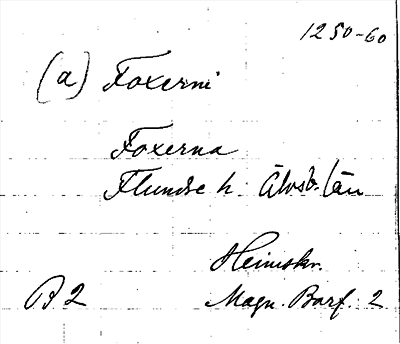 1250-60
(a) Foxerni
Foxerna
Flundre h. Älvsb. län
Heimskr.
B2 Magn. Barf. 2